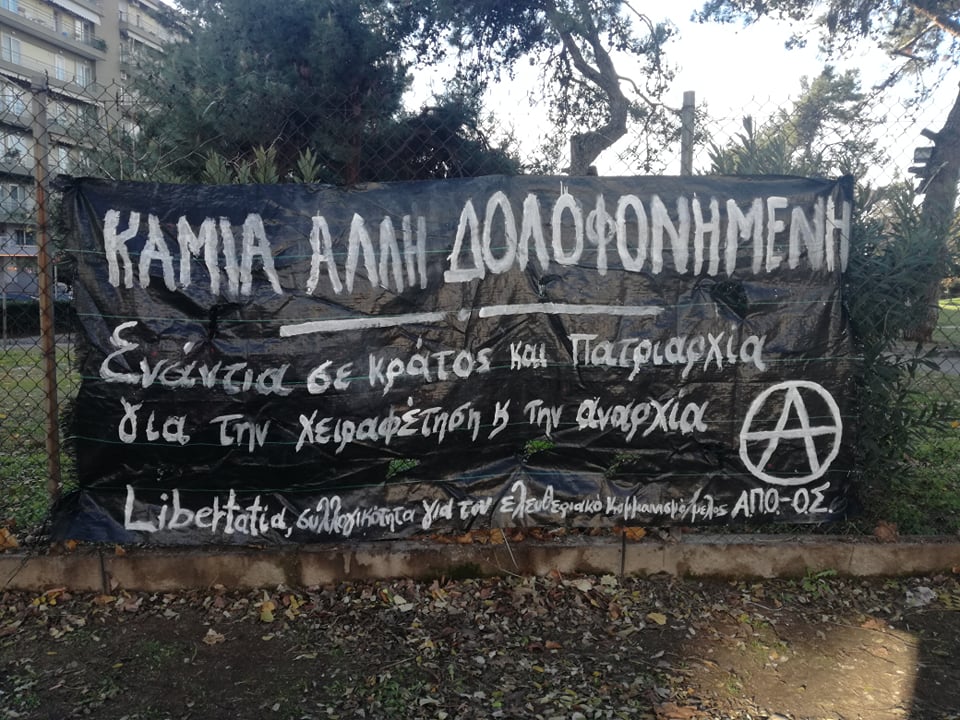 ΚΑΜΙΑ ΑΛΛΗ ΔΟΛΟΦΟΝΗΜΕΝΗ
Ενάντια σε κράτος και Πατριαρχία
για την χειραφέτηση κ την αναρχία
Libertatia, συλλογικότητα για τον ελευθεριακό κομμουνισμό/μελος ΑΠΟ.-Ο.Σ.